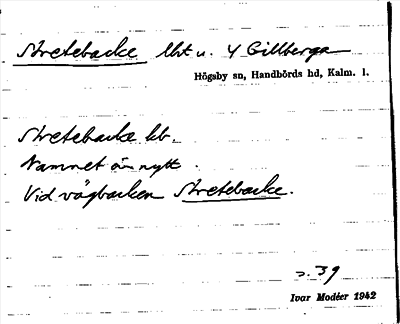 Stretebacke lht u. Y Gillberga
Högsby sn, Handbörds hd, Kalm. l.
Stretebacke hb.
Namnet är nytt.
Vid vägbacken Stretebacke.
s. 39
Ivar Modéer 1942